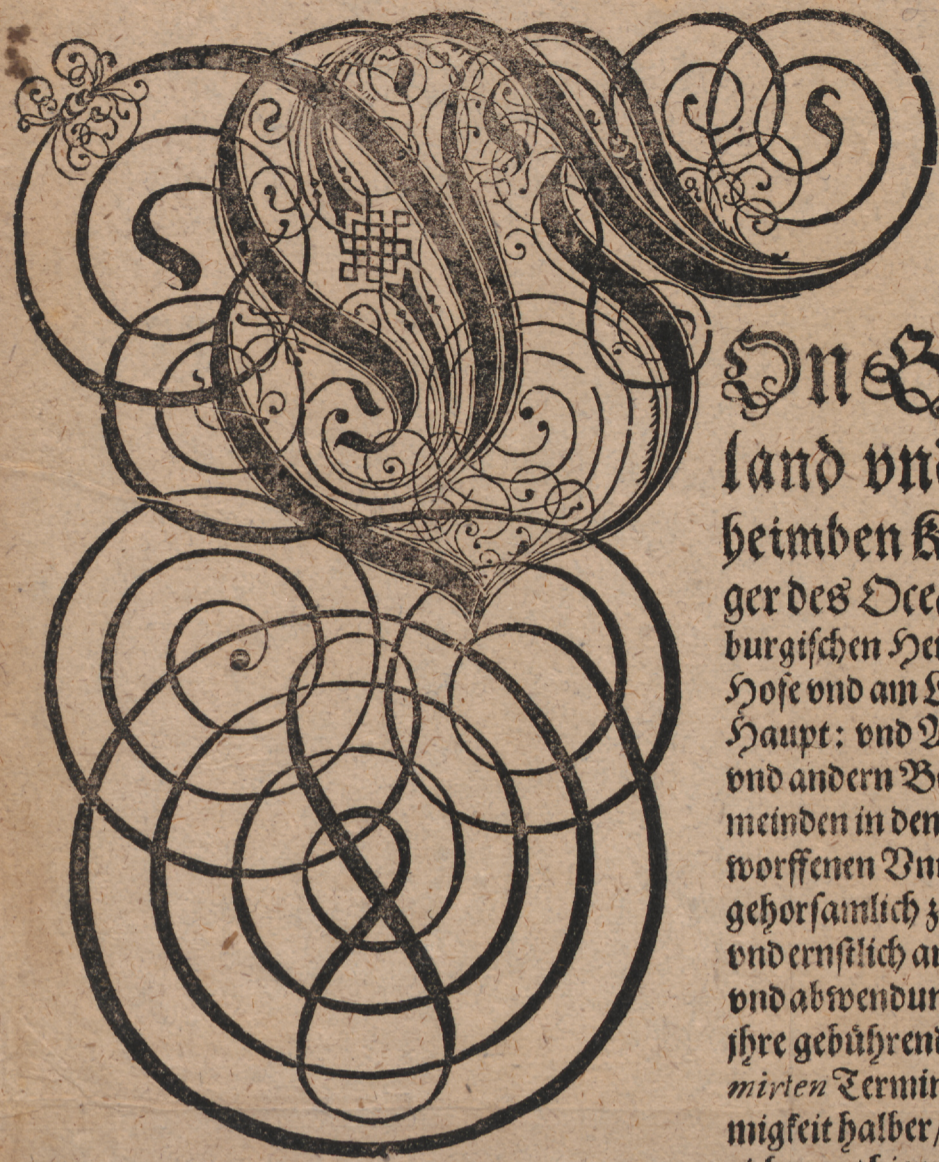 VOn G
land vnd
heimben K
ger des Ocea
burgischen Her
Hofe vnd am L
Haupt: vnd A
vnd andern Be
meinden in den
worffenen Vnn
gehorsamlich z
vnd ernstlich an
vnd abwendun
jhre gebührend
mirten Termin
migkeit halber/